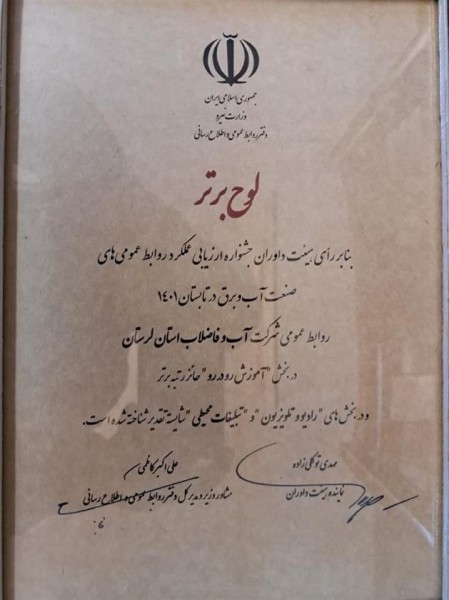 جمهوری اسلامی ایران
وزارت نیرو
دفتر روابط عمومی و اطلاع رسانی
لوح برتر
بنابر رأی هیئت داوران جشنواره ارزیابی عملکرد روابط عمومی های
صنعت آب و برق در تابستان ۱۴۰۱
روابط عمومی شرکت آب و فاضلاب استان لرستان
در بخش "آموزش رو در رو" حائز رتبه برتر
و در بخش های "رادیو و تلویزیون" و "تبلیغات محیطی" شایسته تقدیر شناخته شده است.
مهدی توکلی زاده
نماینده هیئت داوران
علی اکبر کاظمی
مشاور وزیر و مدیر کل دفتر روابط عمومی و اطلاع رسانی